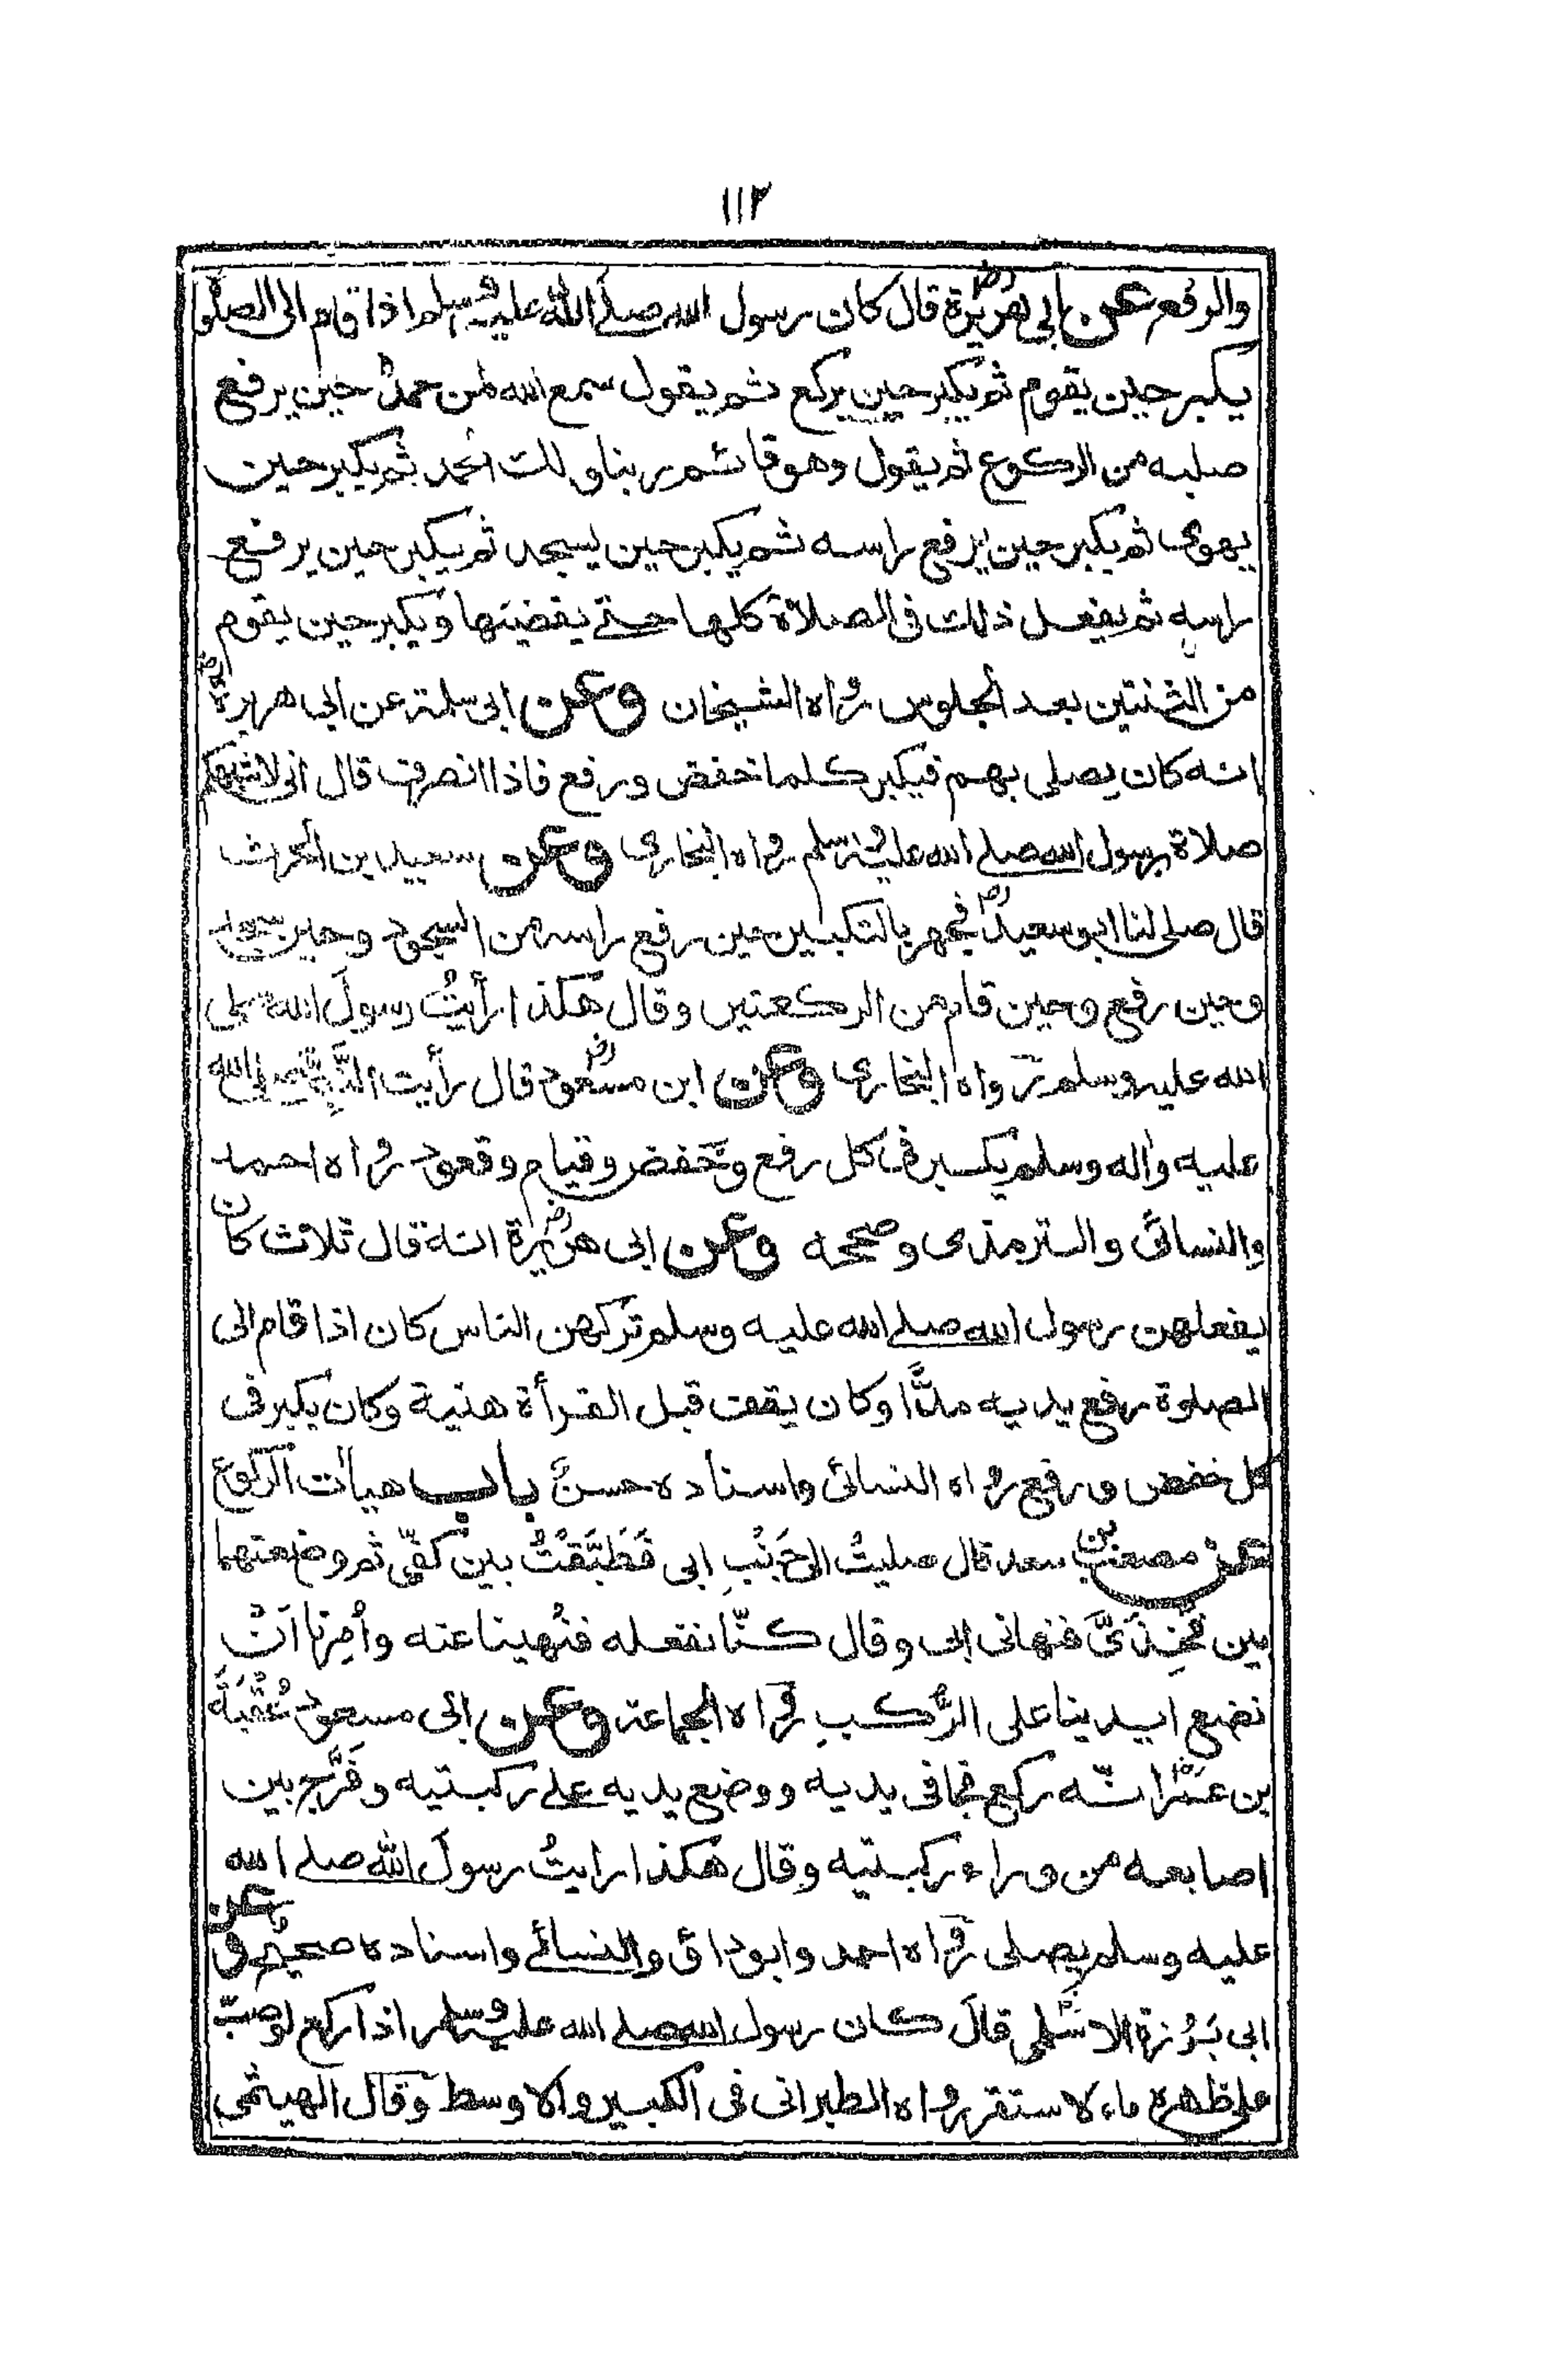 ١١٢
والرفع عن ابي هريرة رض قال كان رسول الله صلے الله عليه وسلم اذا قام الى الصلوة
يكبر حين يقوم ثم يكبر حين يركع ثم يقول سمع الله لمن حمده حين يرفع
صلبه من الركوع ثم يقول وهو قائم ربنا ولك الحمد ثم يكبر حين
يهوى ثم يكبر حين يرفع راسه ثم يكبر حين يسجد ثم يكبر حين يرفع
راسه ثم يفعل ذلك فى الصلاة كلها حتے يقضيها ويكبر حين يقوم
من الثنتين بعد الجلوس رواه الشيخان وعن ابى سلمة عن ابى هريرة رض
انه كان يصلى بهم فيكبر كلما خفض ورفع فاذا انصرف قال انى لاشبهكم
صلاة برسول الله صلے الله عليه وسلم رواه البخارى وعن سعيد بن الحرث
قال صلى لنا ابو سعيد رض فجهر بالتكبير حين رفع راسه من السجود وحين سجد
وحين رفع وحين قام من الركعتين وقال هكذا رأيتُ رسولَ الله صلى
الله عليه وسلم رواه البخارى وعن ابن مسعود رض قال رأيت النَّبِيَّ صلى الله
عليه واله وسلم يكبر فى كل رفع وخفض وقيام وقعود رواه احمد
والنسائى والترمذى وصححه وعن ابى هريرة رض انه قال ثلاث كان
يفعلهن رسول الله صلے الله عليه وسلم تركهن الناس كان اذا قام الى
الصلوة رفع يديه مدًّا وكان يقف قبل القرأة هنية وكان يكبر فى
كل خفض ورفع رواه النسائى واسناده حسنٌ باب هيات الركوع
عن مصعب بن سعد قال صليتُ الى جَنْبِ ابى فَطَبَّقْتُ بين كفَّى ثم وضعتهما
بين فَخِذَىَّ فنهانى ابى وقال كنّا نفعله فنُهينا عنه وأُمِرنا اَنْ
نضع ايدينا على الرُّكَبِ رواه الجماعة وعن ابى مسعود عُقْبَةَ
بن عمرو رض انّه ركع فجافى يديه ووضع يديه علے ركبتيه وفَرَّج بين
اصابعه من وراء ركبتيه وقال هكذا رايتُ رسولَ الله صلے الله
عليه وسلم يصلى رواه احمد وابو داؤد والنسائے واسناده صحيح وعن
ابى بَرْزة الاسلمى رض قالَ كان رسول الله صلے الله عليه وسلم اذا ركع لو صبّ
على ظهره ماء لاستقر رواه الطبرانى فى الكبير والاوسط وقال الهيثمى